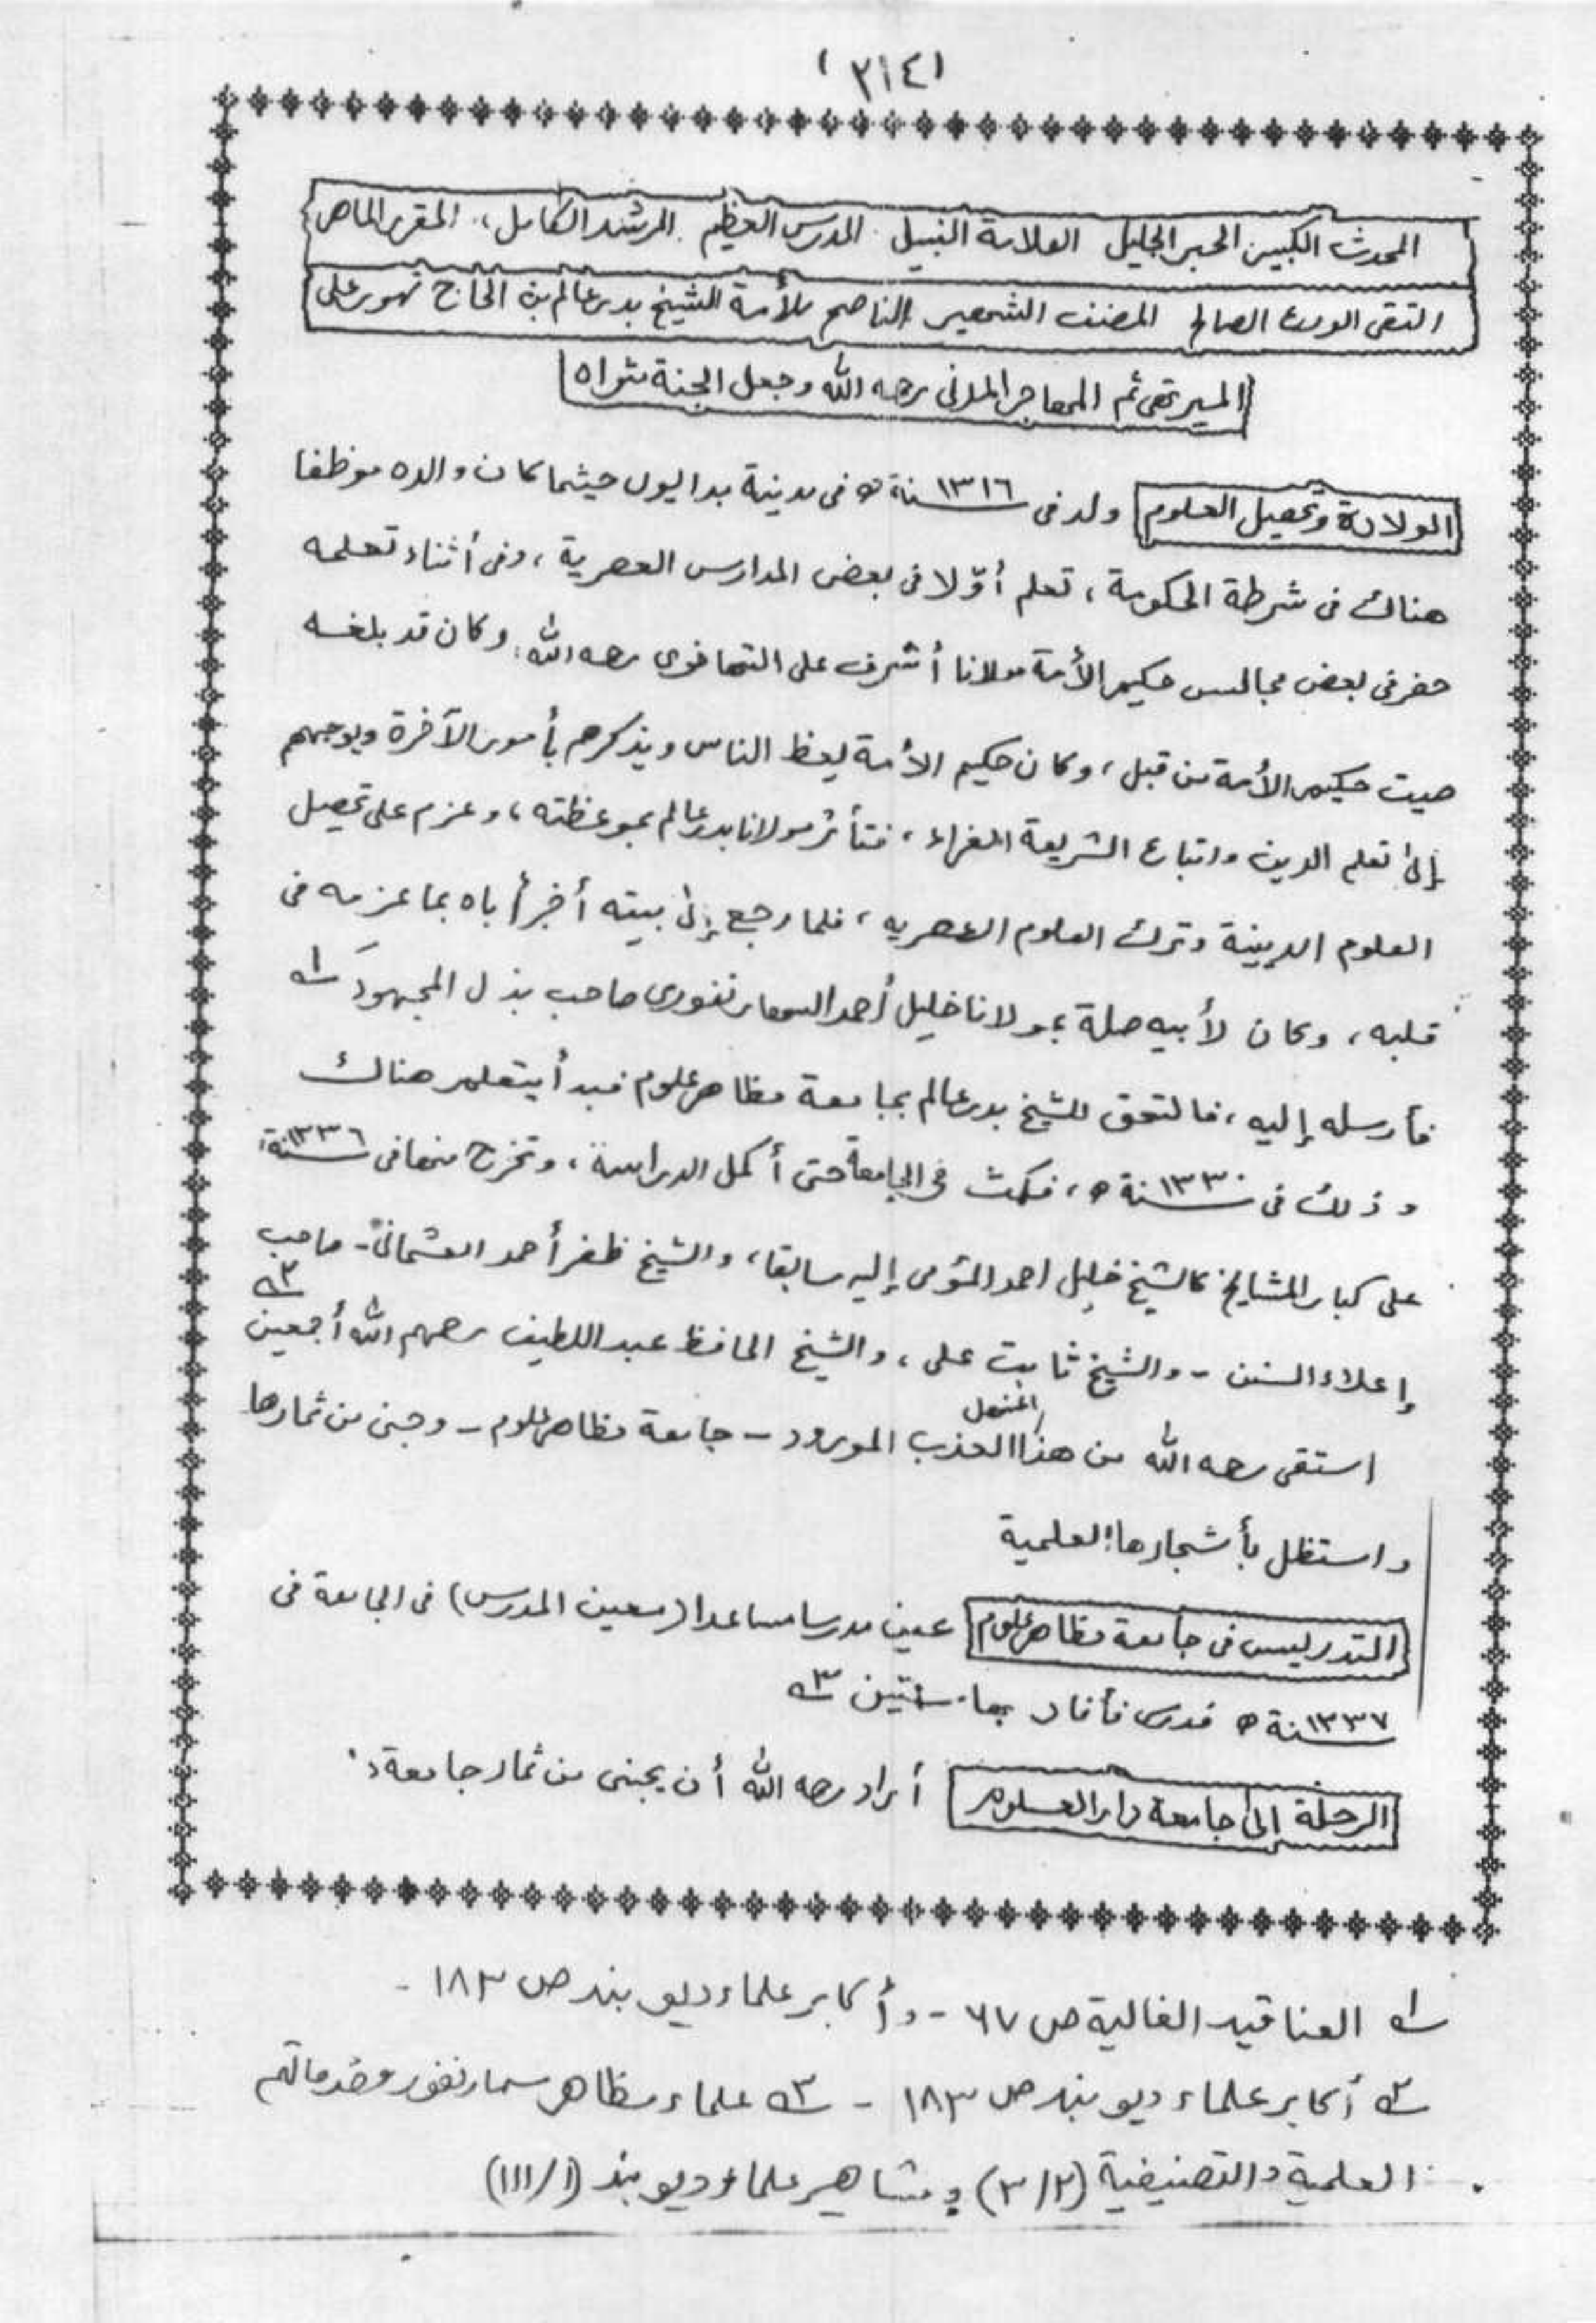 (٣١٤)
المحدث الكبير، الحبر الجليل العلامة النبيل المدرس العظيم المرشد الكامل، المقرر الماهر
التقى الورع الصالح المصنف الشهير الناصح للأمة الشيخ بدر عالم بن الحاج تهور على
الميرتهى ثم المهاجر المدنى رحمه الله وجعل الجنة مثواه
الولادة وتحصيل العلوم ولد فى سنة ١٣١٦ ھ فى مدينة بدايون حيثما كان والده موظفا
هناك فى شرطة الحكومة، تعلم أوّلا فى بعض المدارس العصرية، وفى أثناء تعلمه
حضر فى بعض مجالس حكيم الأمة مولانا أشرف على التهانوى رحمه الله، وكان قد بلغه
صيت حكيم الأمة من قبل، وكان حكيم الأمة يعظ الناس ويذكرهم بأمور الآخرة ويوجههم
إلى تعلم الدين واتباع الشريعة الغراء، فتأثر مولانا بدر عالم بموعظته، وعزم على تحصيل
العلوم الدينية وترك العلوم العصريه، فلما رجع إلى بيته أخبر أباه بما عزمه فى
قلبه، وكان لأبيه صلة بمولانا خليل أحمد السهارنفورى صاحب بذل المجهود ١ـه
فأرسله إليه، فالتحق الشيخ بدر عالم بجامعة مظاهر علوم فبدأ يتعلم هناك
وذلك فى سنة ١٣٣٠ ھ، فمكث فى الجامعة حتى أكمل الدراسة، وتخرج منها فى سنة ١٣٣٦
على كبار المشايخ كالشيخ خليل احمد المؤمى إليه سابقا، والشيخ ظفر أحمد العثمانى - صاحب
إعلاء السنن - والشيخ ثابت على، والشيخ الحافظ عبد اللطيف رحمهم الله أجمعين ٢ـه
استقى رحمه الله من هذا المنهل العذب المورود - جامعة مظاهر علوم - وجنى من ثمارها
واستظل بأشجارها العلمية
التدريس فى جامعة مظاهر علوم عين مدرسا مساعدا (معين المدرس) فى الجامعة فى
سنة ١٣٣٧ ھ فدرس فأفاد بها سنتين ٣ـه
الرحلة إلى جامعة دار العلوم أراد رحمه الله أن يجنى من ثمار جامعة
١ـه العناقيد الغالية ص ٦٧ - وأكابر علماء ديوبند ص ١٨٣ -
٢ـه أكابر علماء ديوبند ص ١٨٣ - ٣ـه علماء مظاهر سهارنفور وخدماتهم
العلمية والتصنيفية (٣/٢) ومشاهير علماء ديوبند (١/١١١)